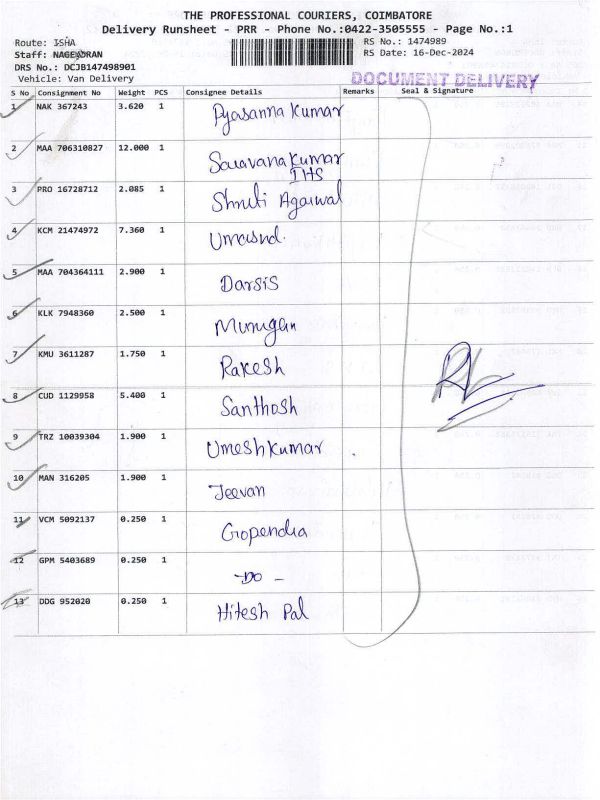 THE PROFESSIONAL COURIERS, COIMBATORE
Delivery Runsheet - PRR - Phone No.:0422-3505555 - Page No.:1
Route: ISHA RS No.: 1474989
Staff: NAGENDRAN RS Date: 16-Dec-2024
DRS No.: DCJB147498901
Vehicle: Van Delivery DOCUMENT DELIVERY
S No Consignment No Weight PCS Consignee Details Remarks Seal & Signature
1 NAK 367243 3.620 1 Pyasanna Kumar
2 MAA 706310827 12.000 1 Saravana Kumar
IHS
3 PRO 16728712 2.085 1 Shruti Agarwal
4 KCM 21474972 7.360 1
5 MAA 704364111 2.900 1 Darsis
6 KLK 7948360 2.500 1 Murugan
7 KMU 3611287 1.750 1 Rakesh
8 CUD 1129958 5.400 1 Santhosh
9 TRZ 10039304 1.900 1 Umesh Kumar
10 MAN 316205 1.900 1 Jeevan
11 VCM 5092137 0.250 1 Gopendra
12 GPM 5403689 0.250 1 -DO-
13 DDG 952020 0.250 1 Hitesh Pal